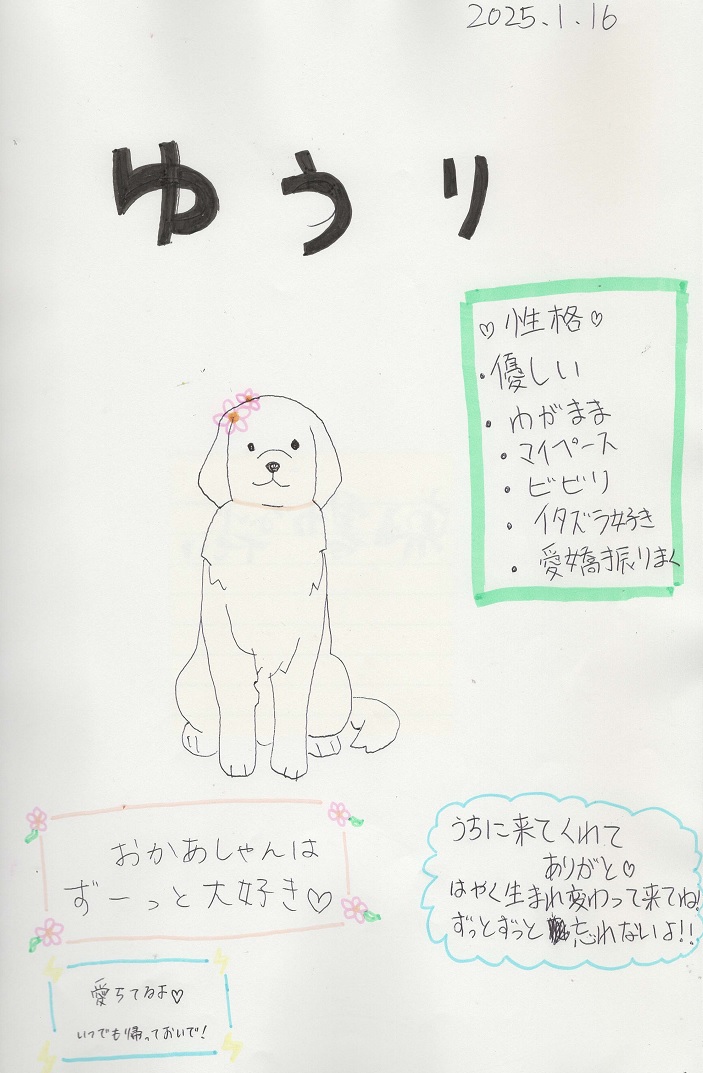 2025.1.16
ゆうり
♡性格♡
・優しい
・わがまま
・マイペース
・ビビリ
・イタズラ好き
・愛嬌振りまく
おかあしゃんは
ずーっと大好き♡
うちに来てくれて
ありがと♡
はやく生まれ変わって来てね!
ずっとずっと忘れないよ!!
愛ちてるよ♡
いつでも帰っておいで!